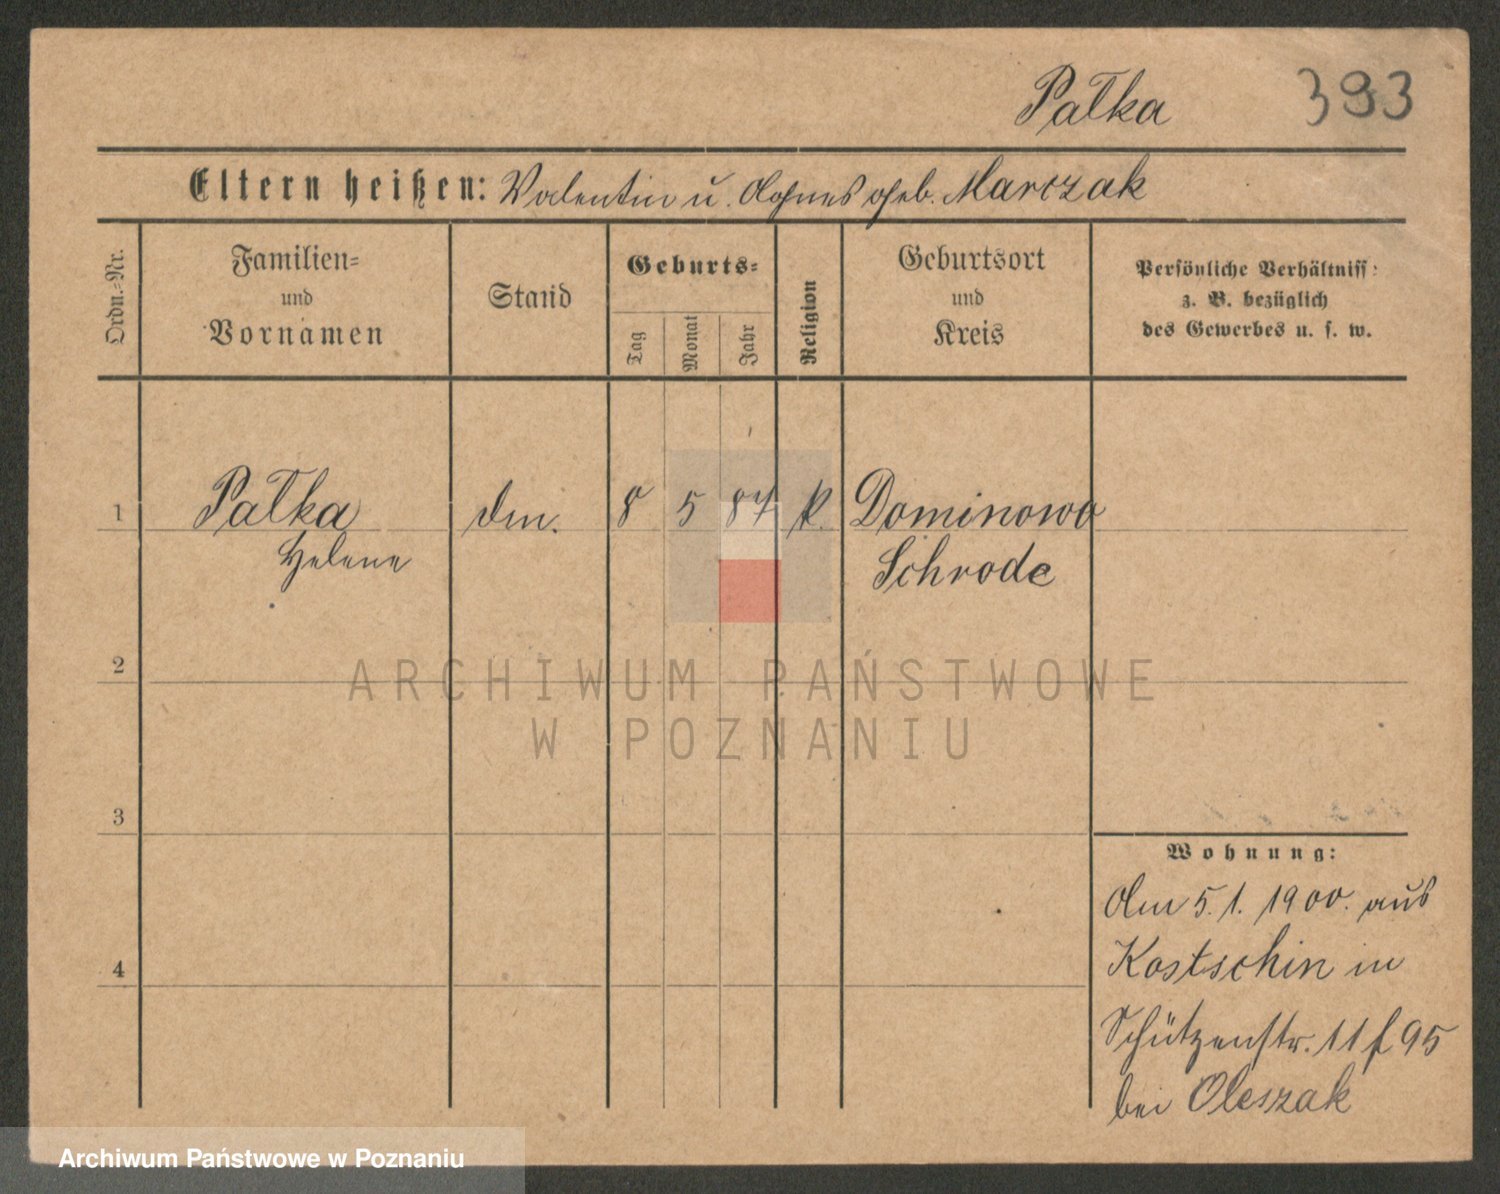 Pałka 393
Eltern heißen: Valentin u. Agnes geb. Marczak
Ordn.=Nr.
Familien=
und
Vornamen
Stand
Geburts=
Tag
Monat
Jahr
Religion
Geburtsort
und
Kreis
Persönliche Verhältniss:
z. B. bezüglich
des Gewerbes u. s. w.
1 Pałka 8 5 87 k. Dominowo
Helene Schrode
2
3
4
Wohnung:
Am 5.1.1900. aus
Kostschin in
Schützenstr. 11 f 95
bei Oleszak
ARCHIWUM PAŃSTWOWE
W POZNANIU
Archiwum Państwowe w Poznaniu